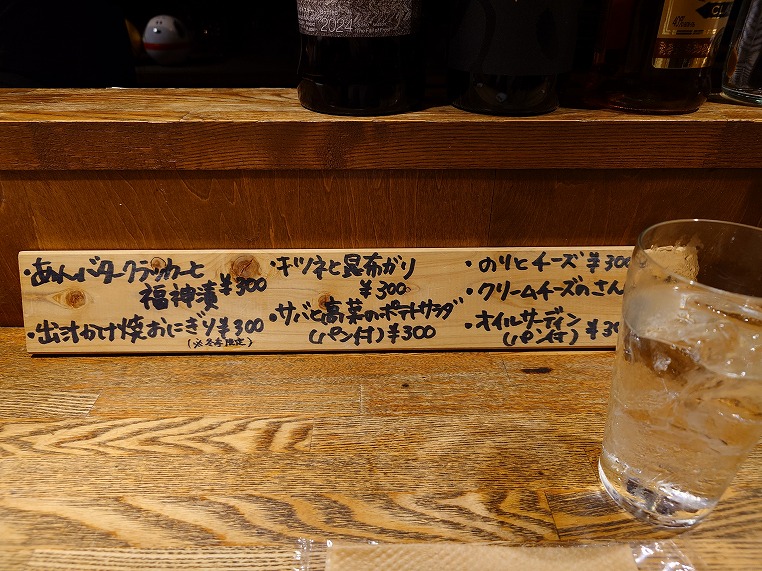 2024
40%
CL
・あんバタークラッカーと
福神漬 ¥300
・出汁かけ焼おにぎり ¥300
(※冬季限定)
・キツネと昆布ガリ
¥300
・サバと高菜のポテトサラダ
(パン付) ¥300
・のりとチーズ ¥300
・クリームチーズのさん
・オイルサーディン
(パン付) ¥30